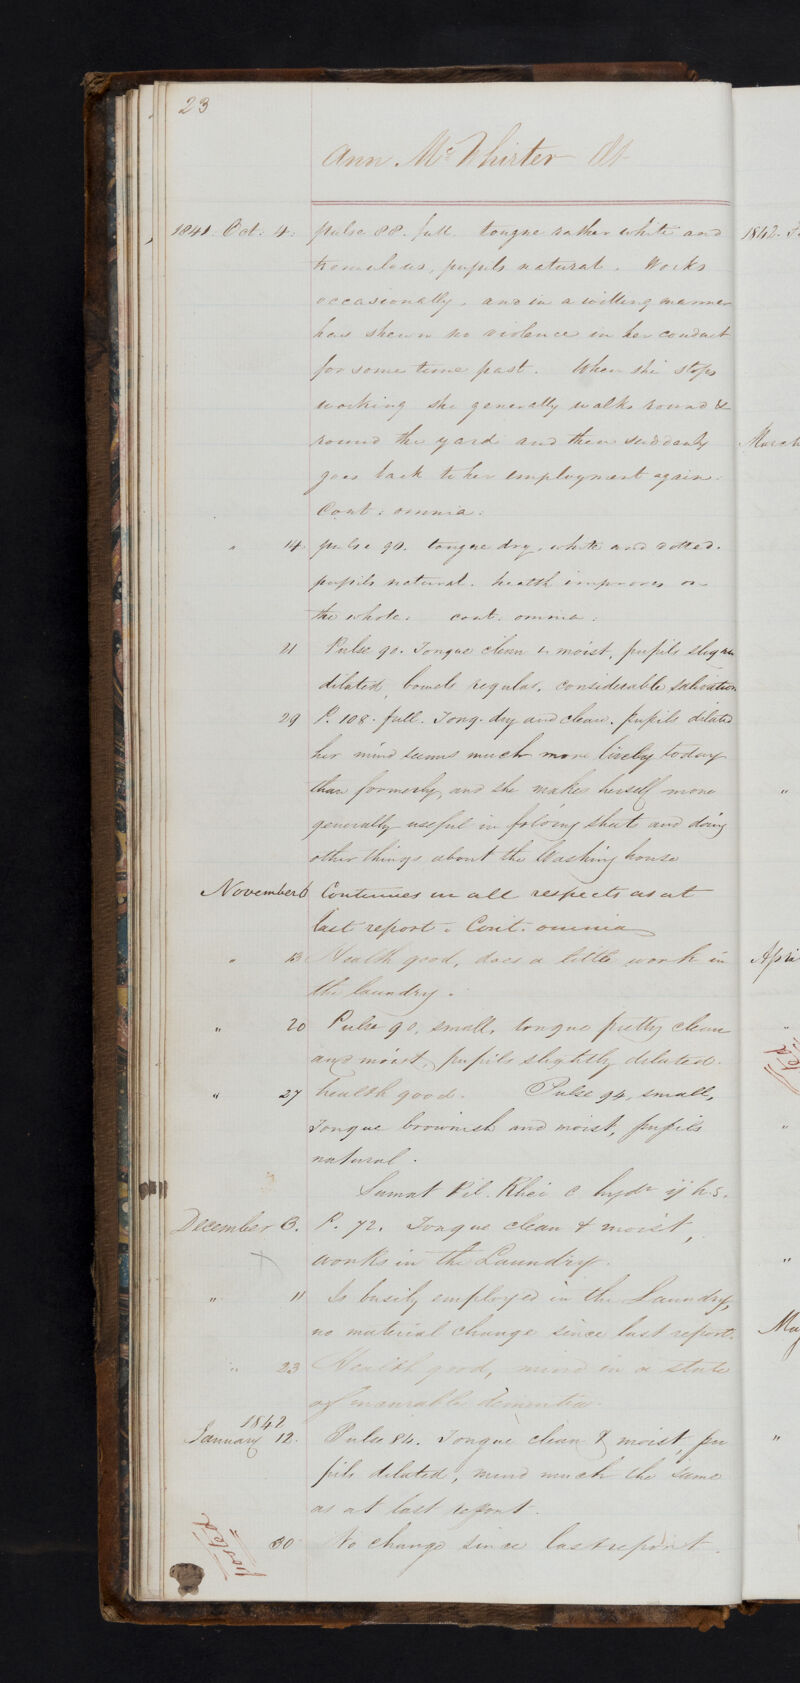 23
Ann McWhirter
1841. Oct. 4. pulse 88. full. tongue rather white and
tremulous, pupils natural. Works
occasionally, and in a willing manner
has shewn no violence in her conduct
for some time past. When she stops
working she generally walks round &
round the yard and then suddenly
goes back to her employment again.
Cont: omnia:
" 14. pulse 90. tongue dry, white and dotted.
pupils natural. health improves on
the whole. cont. omnia.
21 Pulse 90. Tongue clean & moist, pupils
dilated, bowels regular, considerable salivation
29 P. 108. full. Tong. dry and clean. pupils dilated
her mind seems much more lively today
than formerly, and she makes herself more
generally useful in folding sheets and doing
other things about the Washing house
November 6 Continues in all respects as at
last report. Cont. omnia
" 13 Health good, does a little work in
the laundry.
" 20 Pulse 90, small, tongue pretty clean
and moist, pupils slightly dilated.
" 27 health good. Pulse 94, small,
Tongue brownish and moist, pupils
natural.
Sumat Pil. Rhei c hydr ij h.s.
December 3. P. 72. Tongue clean & moist,
works in the Laundry.
" 11 Is busily employed in the Laundry,
no material change since last report.
" 23 Health good, mind in a state
of incurable dementia.
1842
January 12. Pulse 84. Tongue clean & moist, pu
pils dilated, mind much the same
as at last report.
30 No change since last report.
posted
1842. J
March
"
Apri
"
"
"
May
"